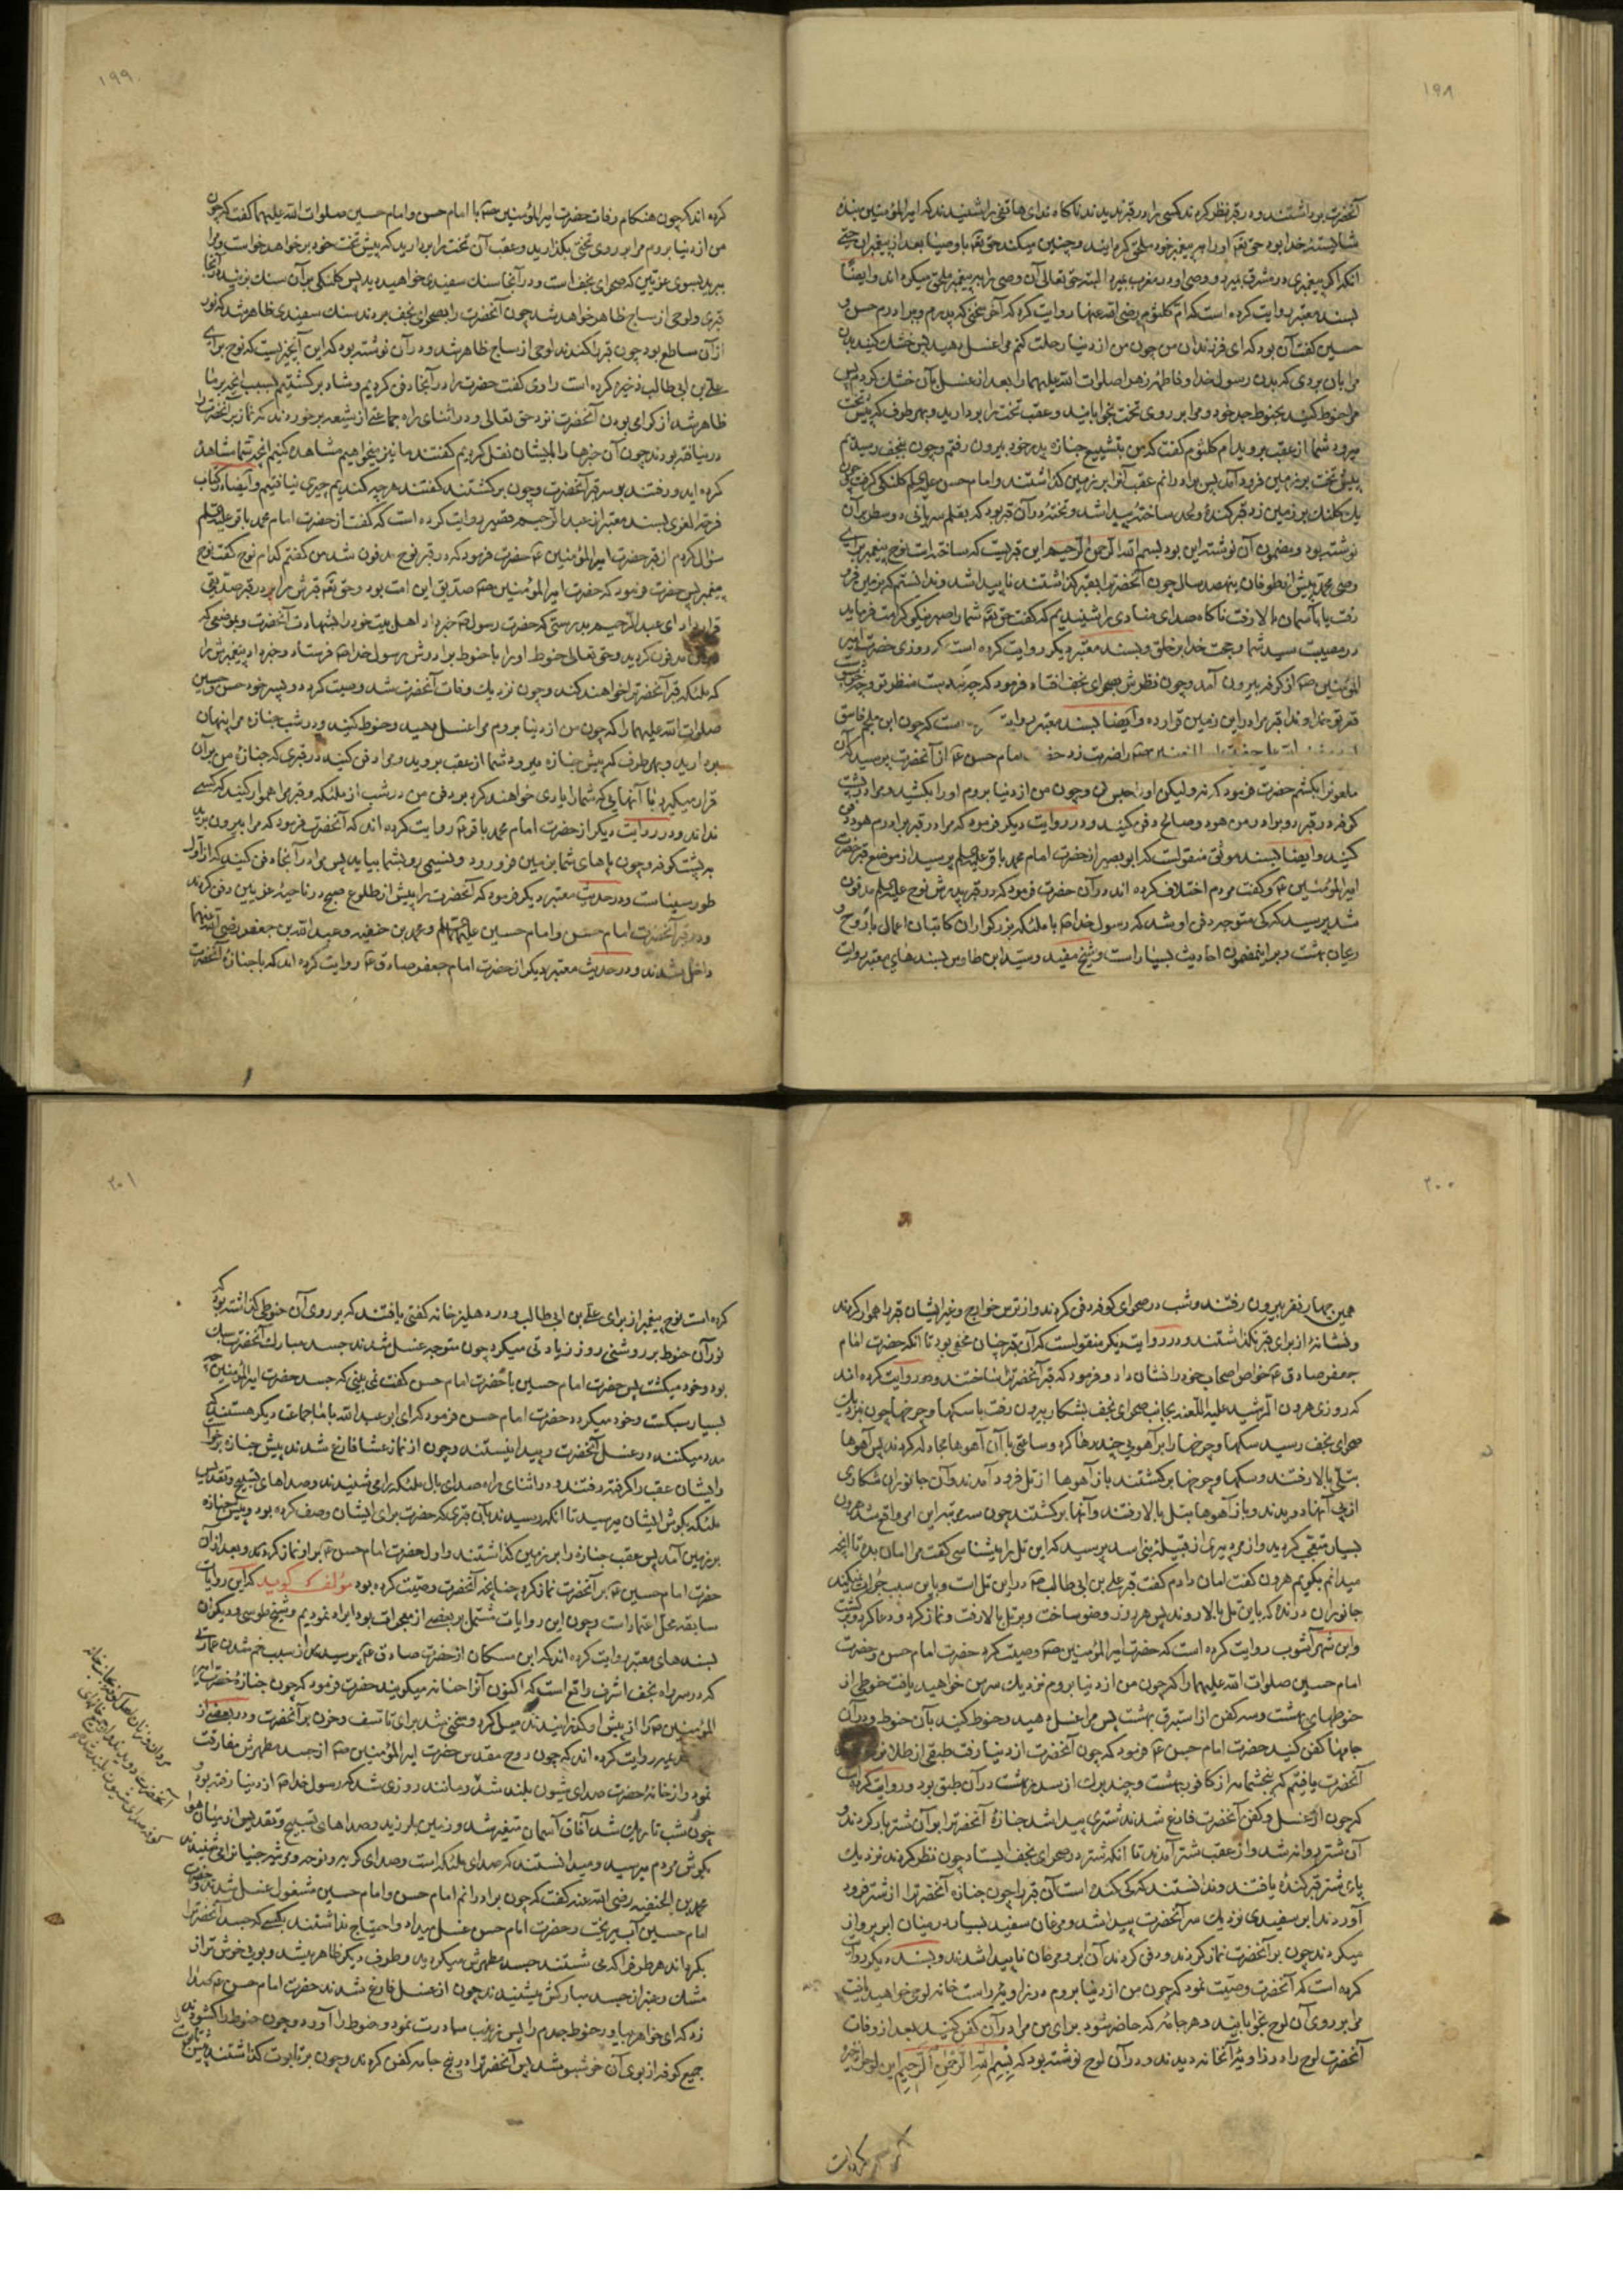 ۱۹۸
آنحضرت برداشتند و در قبر نظر کردند کسی را در قبر ندیدند ناگاه ندای هاتفی را شنیدند که امیرالمؤمنین بنده
شایسته خدا بود حق تعم او را به پیغمبر خود ملحق گردانید و چنین میکند حق تعم با اوصیا بعد از پیغمبران حتی
آنکه اگر پیغمبری در مشرق بمیرد و وصی او در مغرب بمیرد البته حق تعالی آن وصی را به پیغمبر ملحق میگرداند و ایضاً
بسند معتبر روایت کرده است که ام کلثوم رضی الله عنها روایت کرد که آخر سخنی که پدرم و برادرم حسن و
حسین گفت آن بود که ای فرزندان من چون من از دنیا رحلت کنم مرا غسل بدهید پس خشک کنید بدن
مرا بان بردی که بدن رسول خدا و فاطمه زهرا صلوات الله علیهما را بعد از غسل بآن خشک کردم پس
مرا حنوط کنید بحنوط جد خود و مرا بر روی تخت بخوابانید و عقب تخت را بردارید و بهر طرف که پیش تخت
میرود شما از عقب بروید ام کلثوم گفت که من بتشییع جنازه پدر خود بیرون رفتم و چون بنجف رسیدیم
پیش تخت بر زمین فرود آمد پس برادرانم عقب آنرا بر زمین گذاشتند و امام حسن علیه السلم کلنگی گرفت چون
یک کلنگ بر زمین زد قبر کنده و لحد ساخته پیدا شد و تخته در آن قبر بود که بقلم سریانی دو سطر بر آن
نوشته بود و مضمون آن نوشته این بود بسم الله الرحمن الرحیم این قبریست که ساخته است نوح پیغمبر برای
وصی محمد پیش از طوفان بهفصد سال چون آنحضرت را بقبر گذاشتند ناپیدا شد و ندانستم که بزمین فرو
رفت یا بآسمان بالا رفت ناگاه صدای منادی را شنیدیم که گفت حق تعم شما را صبر نیکو کرامت فرماید
در مصیبت سید شما و حجت خدا بر خلق و بسند معتبر دیگر روایت کرده است که روزی حضرت امیر
المؤمنین صم از کوفه بیرون آمد و چون نظرش بصحرای نجف افتاد فرمود که چه نیکوست منظر تو و چه خوشبوست
قعر تو خداوندا قبر مرا در این زمین قرار ده و ایضاً بسند معتبر روایت کرده است که چون ابن ملجم فاسق
حضرت امیرالمؤمنین صم را ضربت زد حضرت امام حسن عم از آنحضرت پرسید که آن
ملعون را بکشم حضرت فرمود که نه ولیکن او را حبس کن و چون من از دنیا بروم او را بکشید و مرا در پشت
کوفه در قبر دو برادر من هود و صالح دفن کنید و در روایت دیگر فرمود که مرا در قبر برادرم هود دفن
کنید و ایضاً بسند موثق منقولست که ابوبصیر از حضرت امام محمد باقر علیه السلم پرسید از موضع قبر حضرت
امیرالمؤمنین عم و گفت مردم اختلاف کرده اند در آن حضرت فرمود که در قبر پدرش نوح علیه السلم مدفون
شد پرسید که کی متوجه دفن او شد که رسول خدا صم با ملئکه بزرگواران کاتبان اعمال با روح و
ریحان بهشت و بر این مضمون احادیث بسیار است و شیخ مفید و سید ابن طاوس بسندهای معتبر روایت
۱۹۹
کرده اند که چون هنگام وفات حضرت امیرالمؤمنین صم با امام حسن و امام حسین صلوات الله علیهما گفت که چون
من از دنیا بروم مرا بر روی تختی بگذارید و عقب آن تخت را بردارید که پیش تخت خود بر خواهد خواست و مرا
ببرید بسوی غریین که صحرای نجف است و در آنجا سنگ سفیدی خواهید دید پس کلنگی بر آن سنگ بزنید در آنجا
قبری و لوحی از ساج ظاهر خواهد شد چون آنحضرت را بصحرای نجف بردند سنگ سفیدی ظاهر شد که نور
از آن ساطع بود چون قبر را کندند لوحی از ساج ظاهر شد و در آن نوشته بود که این آنچیزیست که نوح برای
علی بن ابی طالب ذخیره کرده است راوی گفت حضرت را در آنجا دفن کردیم و شاد برگشتیم بسبب آنچه بر ما
ظاهر شد از گرامی بودن آنحضرت نزد حق تعالی و در اثنای راه جماعتی از شیعه برخوردند که نماز بر آنحضرت را
درنیافته بودند چون آن خبرها را بایشان نقل کردیم گفتند ما نیز میخواهیم مشاهده کنیم آنچه شما مشاهده
کرده اید و رفتند بر سر قبر آنحضرت و چون برگشتند گفتند هرچه کندیم چیزی نیافتیم و ایضاً در کتاب
فرحة الغری بسند معتبر از عبد الرحیم قصیر روایت کرده است که گفت از حضرت امام محمد باقر علیه السلم
سؤال کردم از قبر حضرت امیرالمؤمنین عم حضرت فرمود که در قبر نوح مدفون شد من گفتم کدام نوح گفت نوح
پیغمبر پس حضرت فرمود که حضرت امیرالمؤمنین صم صدیق این امت بود و حق تعم قبرش را در قبر صدیقی
قرار داد ای عبد الرحیم بدرستی که حضرت رسول صم خبر داد اهل بیت خود را بشهادت آنحضرت و بموضعی که
مدفون گردید و حق تعالی حنوط او را با حنوط برادرش رسول خدا صم فرستاد و خبر داد پیغمبرش را
که ملئکه قبر آنحضرت را خواهند کند و چون نزدیک وفات آنحضرت شد وصیت کرد دو پسر خود حسن و حسین
صلوات الله علیهما را که چون من از دنیا بروم مرا غسل بدهید و حنوط کنید و در شب جنازه مرا پنهان
بردارید و بهر طرف که پیش جنازه میرود شما از عقب بروید و مرا دفن کنید در قبری که جنازه من بر آن
قرار میگیرد با آنهایی که شما را یاری خواهند کرد بر دفن من در شب از ملئکه و قبر مرا هموار کنید که کسی
نداند و در روایت دیگر از حضرت امام محمد باقر عم روایت کرده اند که آنحضرت فرمود که مرا بیرون برید
به پشت کوفه و چون پاهای شما بزمین فرو رود و نسیمی رو بشما بیاید پس مرا در آنجا دفن کنید که از اول
طور سیناست و در حدیث معتبر دیگر فرمود که آنحضرت را پیش از طلوع صبح در ناحیه غریین دفن کردند
و در قبر آنحضرت امام حسن و امام حسین علیهما السلم و محمد بن حنفیه و عبد الله بن جعفر رضی الله عنهما
داخل شدند و در حدیث معتبر دیگر از حضرت امام جعفر صادق عم روایت کرده اند که با جنازه آنحضرت
۲۰۰
همین چهار نفر بیرون رفتند و شب در صحرای کوفه دفن کردند و از ترس خوارج و غیر ایشان قبر را هموار کردند
و نشانه از برای قبر نگذاشتند و در روایت دیگر منقولست که آن قبر چنان مخفی بود تا آنکه حضرت امام
جعفر صادق عم خواص اصحاب خود را نشان داد و فرمود که قبر آنحضرت را ساختند و در روایت کرده اند
که روزی هرون الرشید علیه اللعنه بجانب صحرای نجف بشکار بیرون رفت با سگها و چرخها چون بنزدیک
صحرای نجف رسید سگها و چرخها را بر آهویی چند رها کرد و ساعتی با آن آهوها مجادله کردند پس آهوها
بتلی بالا رفتند و سگها و چرخها برگشتند باز آهوها از تل فرود آمدند و آن جانوران شکاری
از پی آنها دویدند و باز آهوها بتل بالا رفتند و آنها برگشتند چون سه مرتبه این امر واقع شد هرون
بسیار متعجب گردید و از مرد پیری از قبیله بنی اسد پرسید که این تل را میشناسی گفت مرا امان بده تا آنچه
میدانم بگویم هرون گفت امان دادم گفت قبر علی بن ابی طالب صم در این تل است و باین سبب جرات نمیکنند
جانوران درنده که باین تل بالا روند پس هرون وضو ساخت و بر تل بالا رفت و نماز کرد و دعا کرد و برگشت
و ابن شهر آشوب روایت کرده است که حضرت امیرالمؤمنین صم وصیت کرد حضرت امام حسن و حضرت
امام حسین صلوات الله علیهما را که چون من از دنیا بروم نزدیک سر من خواهید یافت حنوطی از
حنوطهای بهشت و سه کفن از استبرق بهشت پس مرا غسل دهید و حنوط کنید بآن حنوط و در آن
جامها کفن کنید حضرت امام حسن عم فرمود که چون آنحضرت از دنیا رفت طبقی از طلا نزد سر
آنحضرت یافتم که پنج شمامه از کافور بهشت و چند برگ از سدر بهشت در آن طبق بود و روایت کرده است
که چون از غسل و کفن آنحضرت فارغ شدند شتری پیدا شد جنازه آنحضرت را بر آن شتر بار کردند و
آن شتر روانه شد و از عقب شتر آمدند تا آنکه شتر در صحرای نجف ایستاد چون نظر کردند نزدیک
پای شتر قبر کنده یافتند و ندانستند که کی کنده است آن قبر را چون جنازه آنحضرت را از شتر فرود
آوردند ابر سفیدی نزدیک سر آنحضرت پیدا شد و مرغان سفید بسیار در میان ابر پرواز
میکردند چون بر آنحضرت نماز کردند و دفن کردند آن ابر و مرغان ناپیدا شدند و بسند دیگر روایت
کرده است که آنحضرت وصیت نمود که چون من از دنیا بروم در زاویه راست خانه لوحی خواهید یافت
مرا بر روی آن لوح بخوابانید و هر جامه که حاضر شود برای من مرا در آن کفن کنید بعد از وفات
آنحضرت لوح را در زاویه آنخانه دیدند و در آن لوح نوشته بود که بسم الله الرحمن الرحیم این لوحی است که ذخیره
کرده است
۲۰۱
کرده است نوح پیغمبر از برای علی بن ابی طالب و در دهلیز خانه کفنی یافتند که بر روی آن حنوطی گذاشته بود که
نور آن حنوط بر روشنی روز زیادتی میکرد چون متوجه غسل شدند جسد مبارک آنحضرت سبک
بود و خود میگشت پس حضرت امام حسین با حضرت امام حسن گفت نمی بینی که جسد حضرت امیرالمؤمنین صم
بسیار سبکست و خود میگردد حضرت امام حسن فرمود که ای ابو عبد الله با ما جماعت دیگر هستند که
مدد میکنند در غسل آنحضرت و پیدا نیستند و چون از نماز عشا فارغ شدند پیش جنازه برخواست
و ایشان عقب را گرفته رفتند و در اثنای راه صدای بال ملئکه را می شنیدند و صداهای تسبیح و تقدیس
ملئکه بگوش ایشان میرسید تا آنکه رسیدند بآن قبری که حضرت برای ایشان وصف کرده بود و پیش جنازه
بر زمین آمد پس عقب جنازه را بر زمین گذاشتند و اول حضرت امام حسن عم بر او نماز کردند و بعد از آن
حضرت امام حسین عم بر آنحضرت نماز کرد چنانچه آنحضرت وصیت کرده بود مؤلف گوید که این روایات
سابقه محل اعتماد است و چون این روایات مشتمل بر بعضی از معجزات بود ایراد نمودیم و شیخ طوسی و دیگران
بسندهای معتبر روایت کرده اند که ابن مسکان از حضرت صادق عم پرسید که از سبب خم شدن عمارتی
که در سر راه نجف اشرف واقع است که اکنون آنرا حنانه میگویند حضرت فرمود که چون جنازه حضرت امیر
المؤمنین صم را از پیش او گذرانیدند میل کرد و منحنی شد برای تاسف و حزن بر آنحضرت و در بعضی از
روایت کرده اند که چون روح مقدس حضرت امیرالمؤمنین صم از جسد مطهرش مفارقت
نمود و از خانه حضرت صدای شیون بلند شد و مانند روزی شد که رسول خدا صم از دنیا رفته بود و
چون شب تاریک شد آفاق آسمان متغیر شد و زمین بلرزید و صداهای تسبیح و تقدیس از میان هوا
بگوش مردم میرسید و میدانستند که صدای ملئکه است و صدای گریه و نوحه و مرثیه جنیان را می شنیدند
محمد بن الحنفیه رضی الله عنه گفت که چون برادرانم امام حسن و امام حسین مشغول غسل شدند حضرت
امام حسین آب میریخت و حضرت امام حسن غسل میداد و احتیاج نداشتند بکسی که جسد آنحضرت را
بگرداند هر طرف را که می شستند جسد مطهرش میگردید و طرف دیگر ظاهر میشد و بویی خوش تر از
مشک و عنبر از جسد مبارکش میشنیدند چون از غسل فارغ شدند حضرت امام حسن عم صدا
زد که ای خواهر بیاور حنوط جدم را پس زینب مبادرت نمود و حنوط را آورد و چون حنوط را گشودند
جمیع کوفه از بوی آن خوشبو شد پس آنحضرت را در پنج جامه کفن کردند و چون بر تابوت گذاشتند پیش تابوت